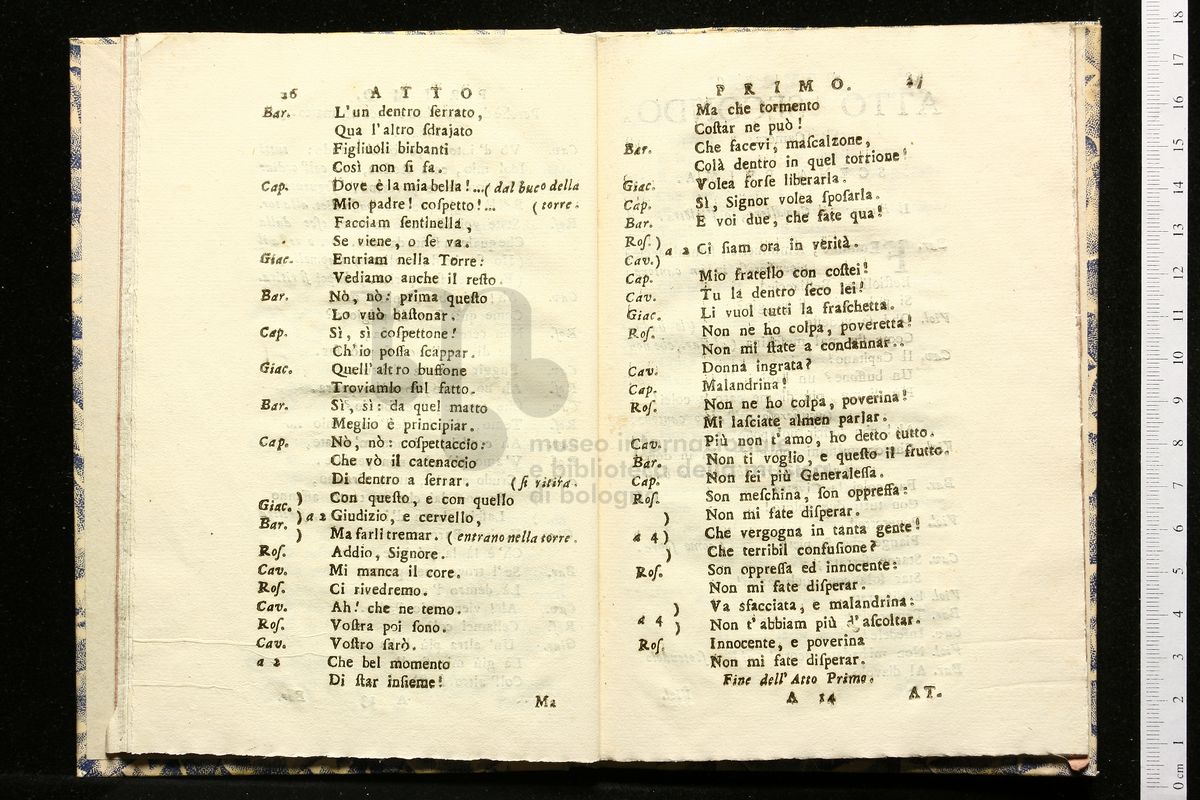 26 ATTO
Bar. L'un dentro ſerrato,
Qua l'altro ſdrajato
Figliuoli birbanti
Così non ſi fa.
Cap. Dove è la mia bella!...( dal buco della
Mio padre! coſpetto!... ( torre.
Facciam ſentinella,
Se viene, o ſe va.
Giac. Entriam nella Torre:
Vediamo anche il reſto.
Bar. Nò, nò: prima queſto
Lo vuò baſtonar.
Cap. Sì, sì coſpettone!
Ch'io poſſa ſcappar.
Giac. Quell'altro buffone
Troviamlo ſul fatto.
Bar. Sì, sì: da quel matto
Meglio è principiar.
Cap. Nò, nò: coſpettaccio:
Che vò il catenaccio
Di dentro a ſerrar. ( ſi ritira.
) Con queſto, e con quello
Giac. Bar. ) a 2 Giudizio, e cervello,
) Ma farli tremar. ( entrano nella torre.
Roſ. Addio, Signore.
Cav. Mi manca il core.
Roſ. Ci rivedremo.
Cav. Ah! che ne temo.
Roſ. Voſtra poi ſono.
Cav. Voſtro ſarò.
a 2 Che bel momento
Di ſtar inſieme!
Ma
PRIMO. 27
Ma che tormento
Coſtar ne può!
Bar. Che facevi, maſcalzone,
Colà dentro in quel torrione?
Giac. Volea forſe liberarla.
Cap. Sì, Signor volea ſpoſarla.
Bar. E voi due, che fate qua?
Roſ. ) Cav. ) a 2 Ci ſiam ora in verità.
Cap. Mio fratello con coſtei!
Cav. Tu là dentro ſeco lei!
Giac. Li vuol tutti la fraſchetta.
Roſ. Non ne ho colpa, poveretta!
Non mi ſtate a condannar..
Cav. Donna ingrata?
Cap. Malandrina!
Roſ. Non ne ho colpa, poverina!
Mi laſciate almen parlar.
Cav. Più non t'amo, ho detto tutto.
Bar. Non ti voglio, e queſto il frutto.
Cap. Non ſei più Generaleſſa.
Roſ. Son meſchina, ſon oppreſſa:
Non mi fate diſperar.
) Che vergogna in tanta gente!
a 4 ) Che terribil confuſione?
Roſ. Son oppreſſa ed innocente:
Non mi fate diſperar.
) Va sfacciata, e malandrina:
a 4 ) Non t'abbiam più d'aſcoltar.
Roſ. Innocente, e poverina
Non mi fate diſperar.
Fine dell' Atto Primo.
A 14 AT.
museo internazionale
e biblioteca della musica
di bologna
0 cm 1 2 3 4 5 6 7 8 9 10 11 12 13 14 15 16 17 18